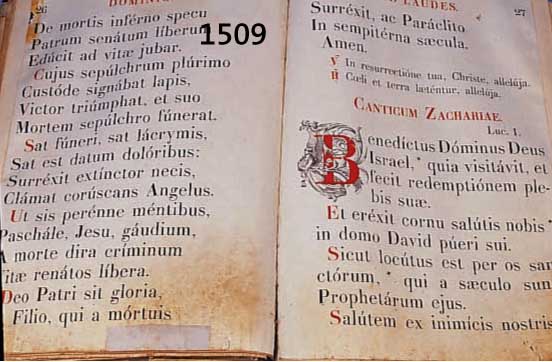 26
De mortis inférno specu
Patrum senátum líberum
Edúcit ad vitæ jubar.
Cujus sepúlchrum plúrimo
Custóde signábat lapis,
Victor triúmphat, et suo
Mortem sepúlchro fúnerat.
Sat fúneri, sat lácrymis,
Sat est datum dolóribus:
Surréxit extínctor necis,
Clámat corúscans Angelus.
Ut sis perénne méntibus,
Paschále, Jesu, gáudium,
A morte dira críminum
Vitæ renátos líbera.
Deo Patri sit gloria,
Filio, qui a mórtuis
1509
LAUDES.
27
Surréxit, ac Paráclito
In sempitérna sæcula.
Amen.
℣ In resurrectióne tua, Christe, allelúja.
℟ Cœli et terra læténtur, allelúja.
CANTICUM ZACHARIAE.
Luc. 1.
Benedíctus Dóminus Deus
Israel, * quia visitávit, et
fecit redemptiónem ple-
bis suæ.
Et eréxit cornu salútis nobis *
in domo David púeri sui.
Sicut locútus est per os san
ctórum, * qui a sæculo sun
Prophetárum ejus.
Salútem ex inimícis nostris